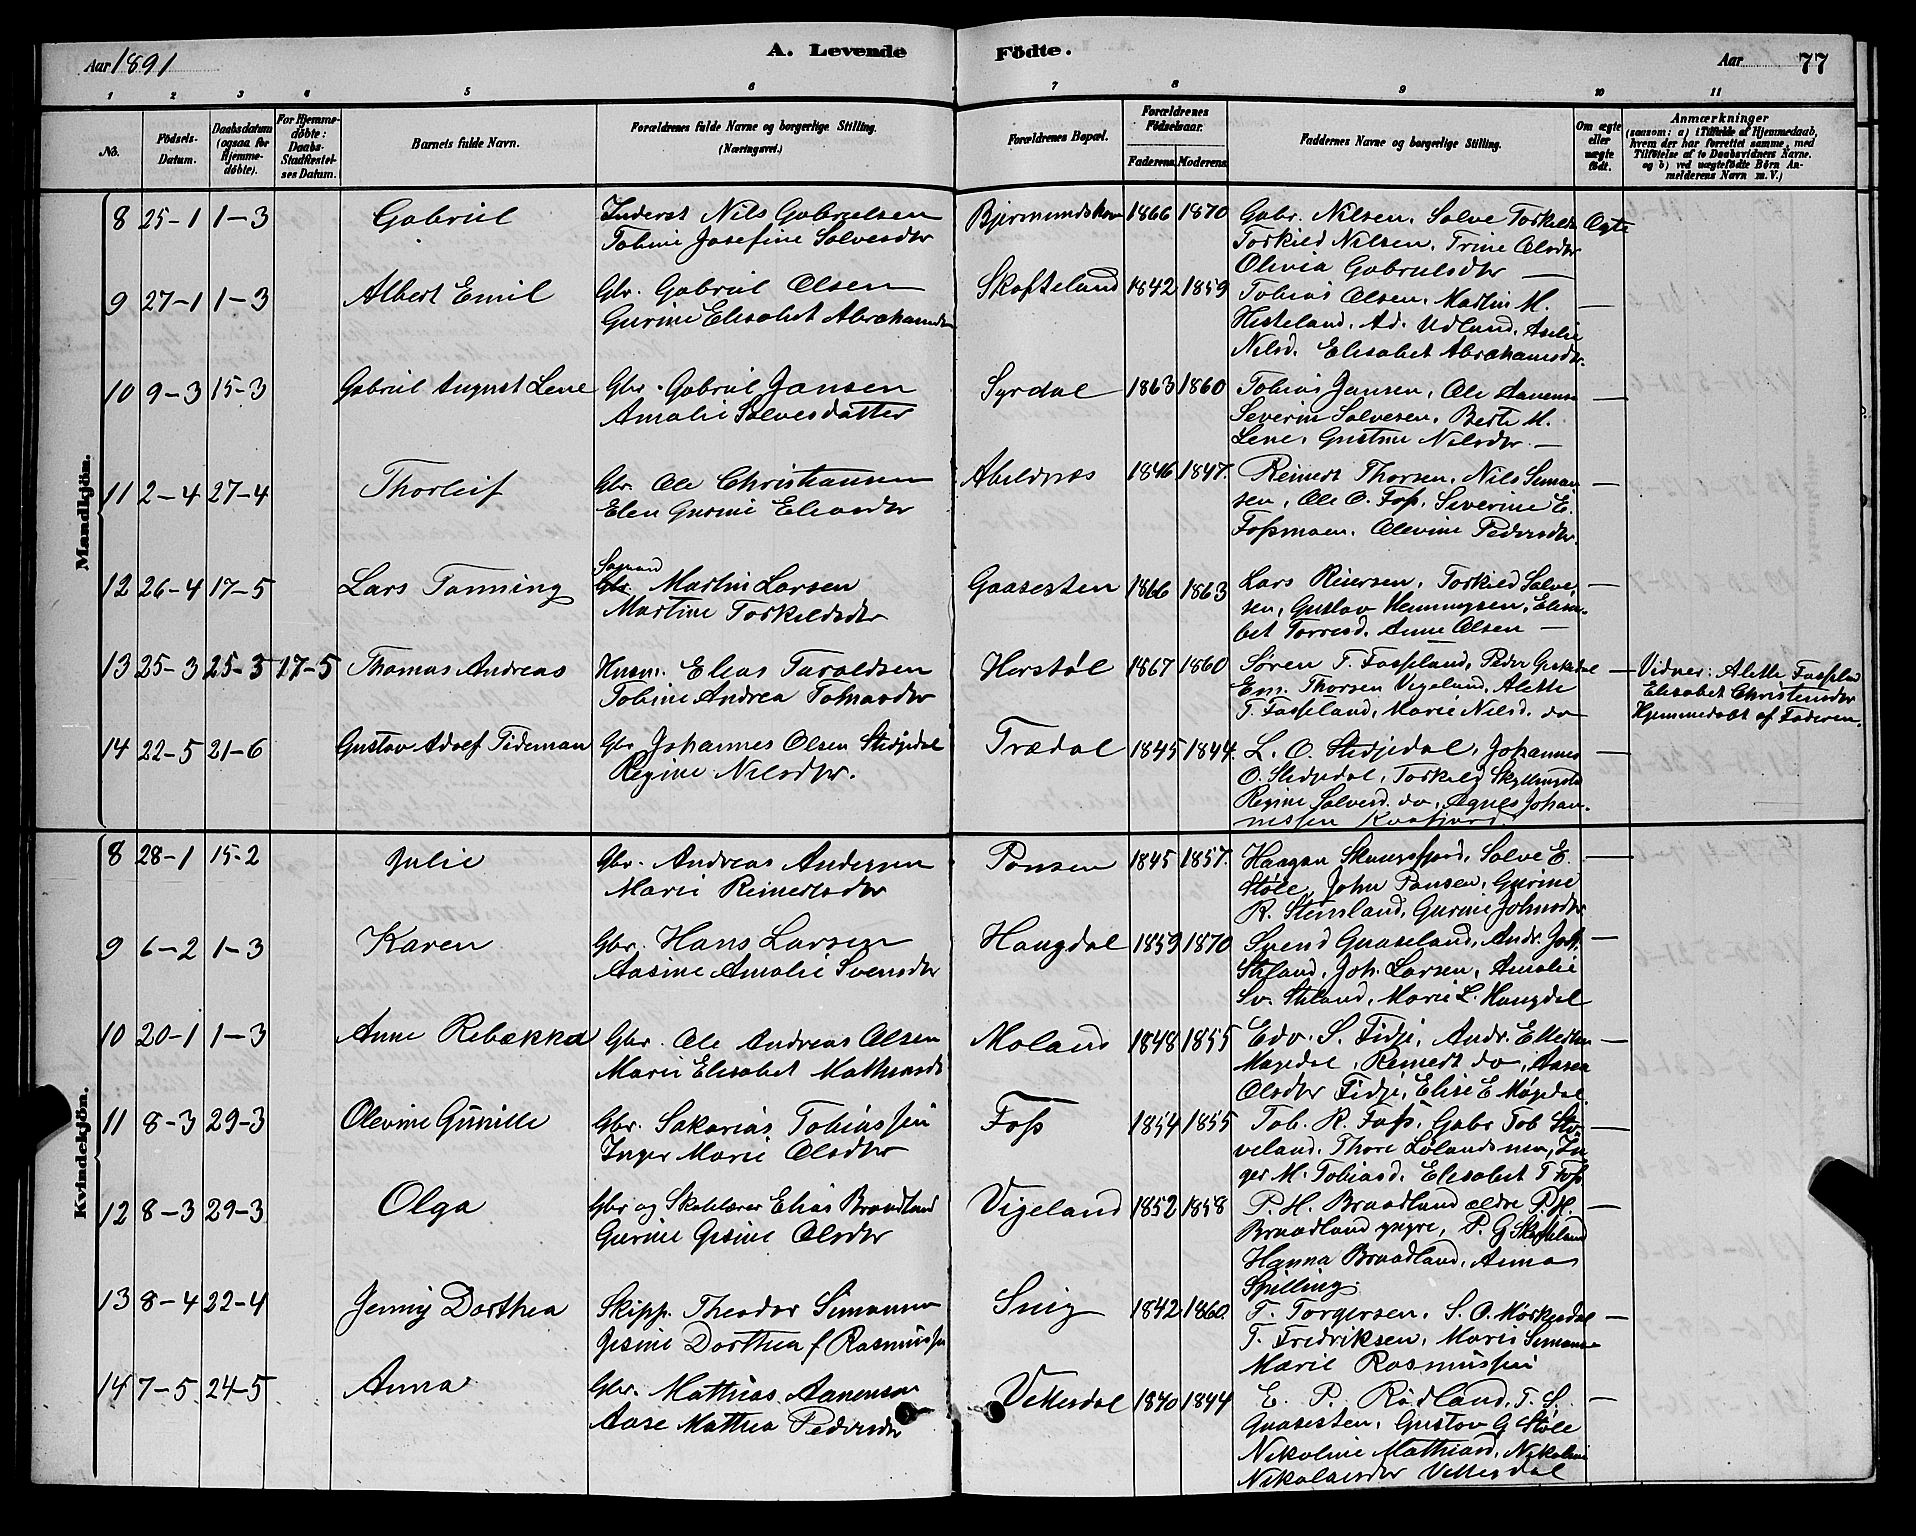 Aar 1891
A. Levende Födte.
Aar 77
1 2 3 4 5 6 7 8 9 10 11
No.
Födsels-Datum.
Daabsdatum (ogsaa for Hjemme-döbte).
For Hjemme-döbte: Daabs-Stadfæstel-ses Datum.
Barnets fulde Navn.
Forældrenes fulde Navne og borgerlige Stilling. (Næringsvei.)
Forældrenes Bopæl.
Forældrenes Födselsaar.
Faderens. Moderens.
Faddernes Navne og borgerlige Stilling.
Om ægte eller uægte født.
Anmærkninger
(saasom: a) i Tilfælde af Hjemmedaab, hvem der har forrettet samme, med Tilföielse af to Daabsvidners Navne. og b) ved uægtefödte Börn An-melderens Navn m. V.)
Mandkjön.
8 25-1 1-3 Gabriel Inderst Nils Gabrielsen Bjermundskou 1866 1870 Gabr. Nilsen, Salve Torkilds Ægte
Tobine Josefine Salvesdtr Torkild Nilsen, Trine Olsdtr
Olivia Gabrielsdtr —
9 27-1 1-3 Albert Emil Gbr. Gabriel Olsen Skofteland 1842 1859 Tobias Olsen, Martin M. —
Gurine Elisabet Abrahamsdtr Hesteland, Ad. Udland, Aselie
Nilsd. Elisabet Abrahamsdtr.
10 9-3 15-3 Gabriel August Lene Gbr. Gabriel Jansen Syrdal 1863 1860 Tobias Jansen, Ole Aanens —
Amalie Salvesdatter Severin Salvesen, Berte M.
Lene, Gustine Nilsdtr. —
11 2-4 27-4 Thorleif Gbr. Ole Christiansen Abelnæs 1846 1847. Reinert Thorsen, Nils Siman —
Elen Gurine Eliasdtr sen, Ole O. Foss, Severine E.
Fossmoen, Olevine Pedersdtr.
12 26-4 17-5 Lars Tønning Sømand Martin Larsen Gaasesten 1866 1863 Lars Reiersen, Torkild Salve, —
Martine Torkildsdtr sen, Gustav Henningsen, Elisa-
bet Torresd. Anne Olsen —
13 25-3 25-3 17-5 Thomas Andreas Husm. Elias Taraldsen Herstøl 1867 1860 Søren T. Fasseland, Peder — Vidner: Alette Fasseland
Tobine Andrea Tobiasdtr Em. Thorsen Vigeland, Alette Elisabet Christensdtr
T. Fasseland, Marie Nilsd. do Hjemmedøbt af Faderen.
14 22-5 21-6 Gustav Adolf Tideman Gbr Johannes Olsen Stidjedal Trædal 1845 1844. L. O. Stidjedal, Johannes —
Regine Nilsdtr. O. Stidjedal, Torkild
Regine Salvesd. do, Agnes Johan-
nessen Kvafjord
Kvindekjön.
8 28-1 15-2 Julie Gbr. Andreas Andersen Ponsen 1845 1857. Haagan Skungsfjord, Salve E. —
Marie Reinertsdtr Støle, John Ponsen, Gurine
R. Stensland, Gurine Johnsdtr
9 6-2 1-3 Karen Gbr. Hans Larsen Haugdal 1859 1870 Svend Guaseland, Andr. Joh. —
Aasine Amalie Svensdtr Steland, Joh. Larsen, Amalie
Sv. Steland, Marie L. Haugdal
10 20-1 1-3 Anne Rebækka Gbr. Ole Andreas Olsen Moland 1848 1855 Edv. S. Fidje, Andr. Ellefsen —
Marie Elisabet Mathiasdtr Møgedal, Reinert do, Aasea
Olsdtr Fidje, Elise E Møgedal.
11 8-3 29-3 Olevine Gunille Gbr. Sakarias Tobiassen Foss 1854 1855 Tob. R. Foss, Gabr Tob Sto- —
Inger Marie Olsdtr veland, Thore Lølandsmoe, In
ger M. Tobiasd. Elisabet T Foss
12 8-3 29-3 Olga Gbr og Skolelærer Elias Braadland Vigeland 1852 1858 P. H. Braadland ældre P. H. —
Gurine Gesine Olsdtr Braadland yngre, P. G Skofteland
Hanna Braadland, Anna
Spilling
13 8-4 22-4 Jenny Dorthea Skipp. Theodor Simonsen Snig 1842 1860. T. Torgersen, S. O. Mørkesdal —
Jesine Dorthea f Rasmussen T. Fredriksen, Maris Simonsen
Marie Rasmussen
14 7-5 24-5 Anna Gbr. Mathias Aanensen Vettesdal 1840 1844 E. P. Rødland, T. S. —
Aase Mathea Pedersdtr Gaasesten, Gustav G Støle
Nikoline Mathiasd, Nikoline
Nikolaisdtr Vettesdal